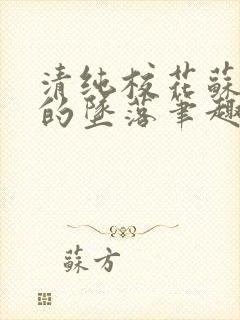 清纯校花蘇
的墜落筆趣
蘇方